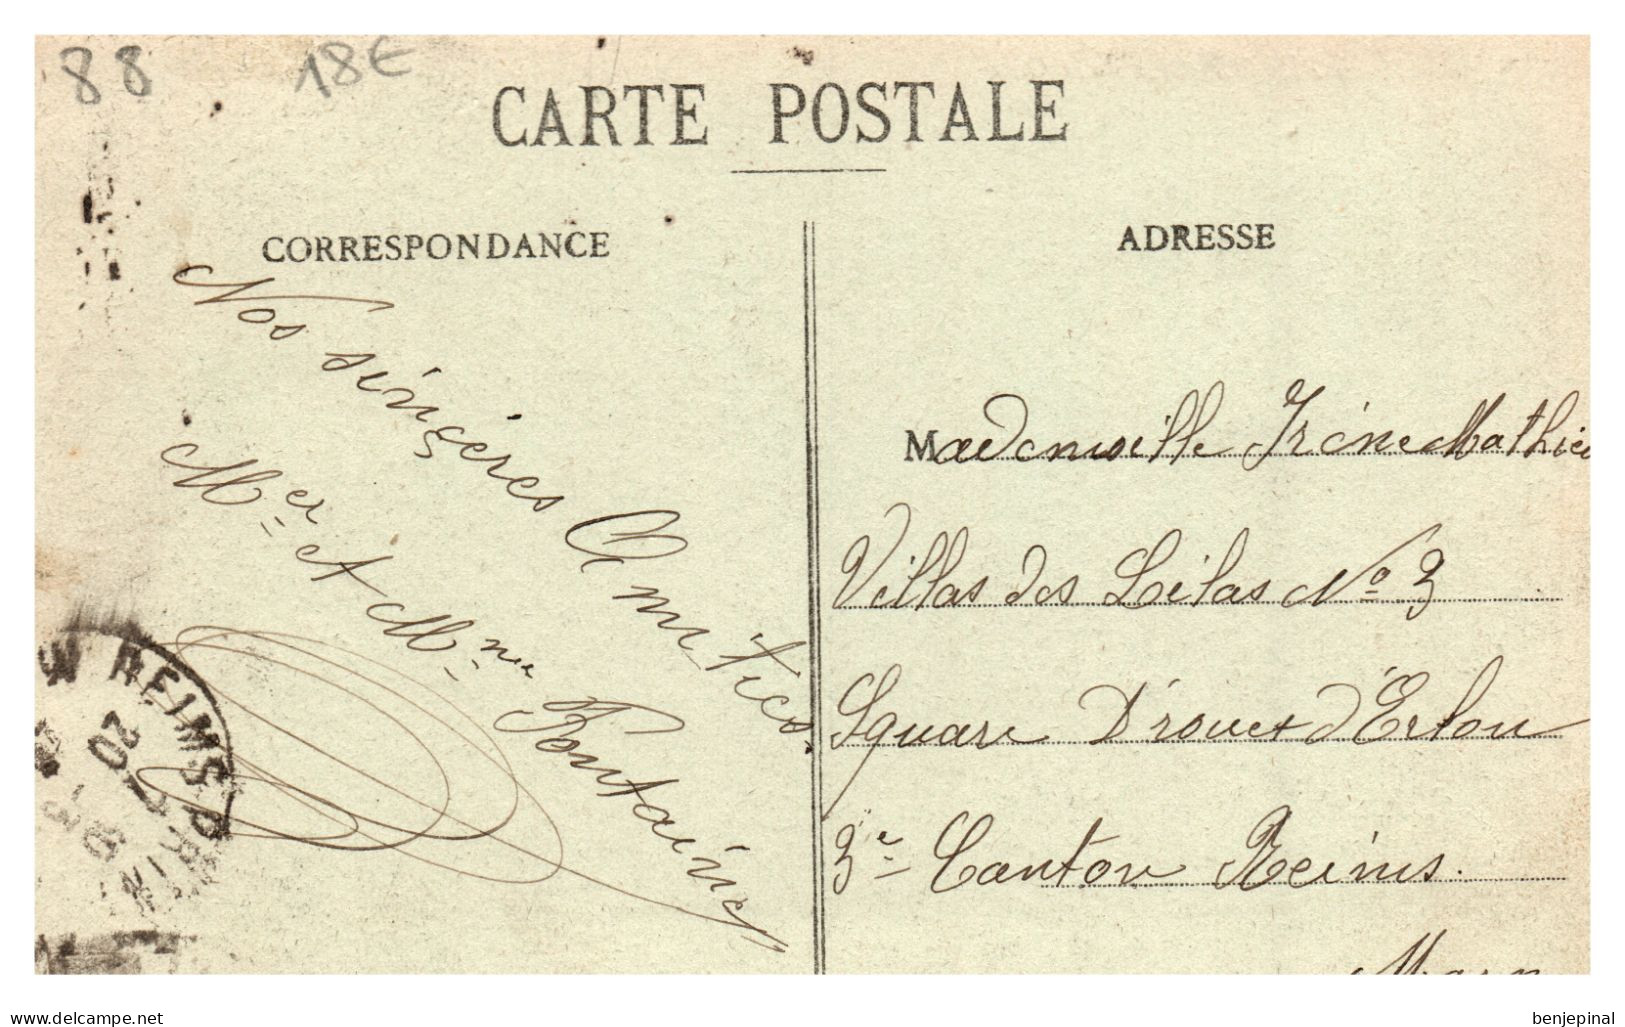 88
18€
CARTE POSTALE
CORRESPONDANCE
Nos sinçères Amitiés.
Mer et Mme Fontaine
ADRESSE
Mademoiselle Irène Mathieu
Villas des Lilas No 3
Square Drouet d'Erlon
3e Canton Reims.
Marn
REIMS
20
www.delcampe.net
benjepinal